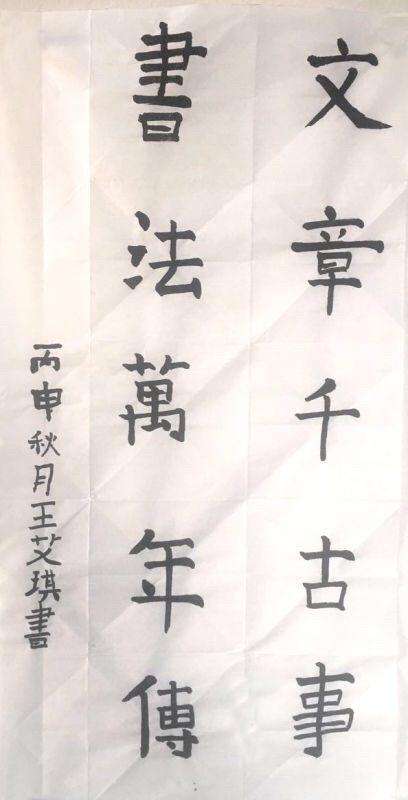 文章千古事
書法萬年傳
丙申秋月王艾琪書